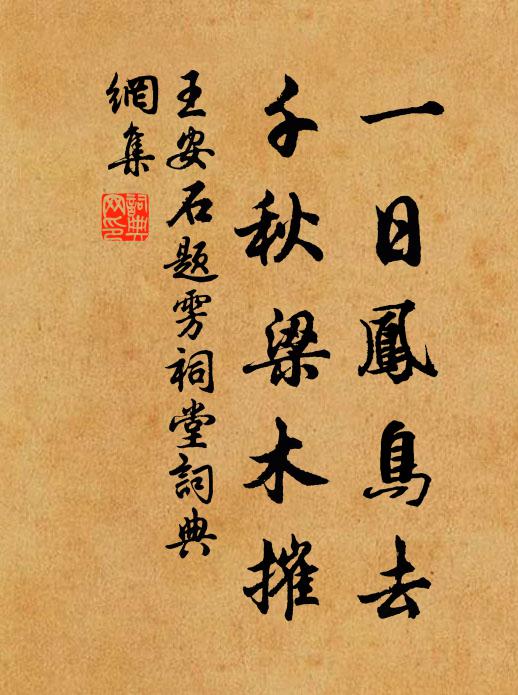 一日鳳鳥去
千秋梁木摧
王安石題雱祠堂詞典
網集
詞典
网印